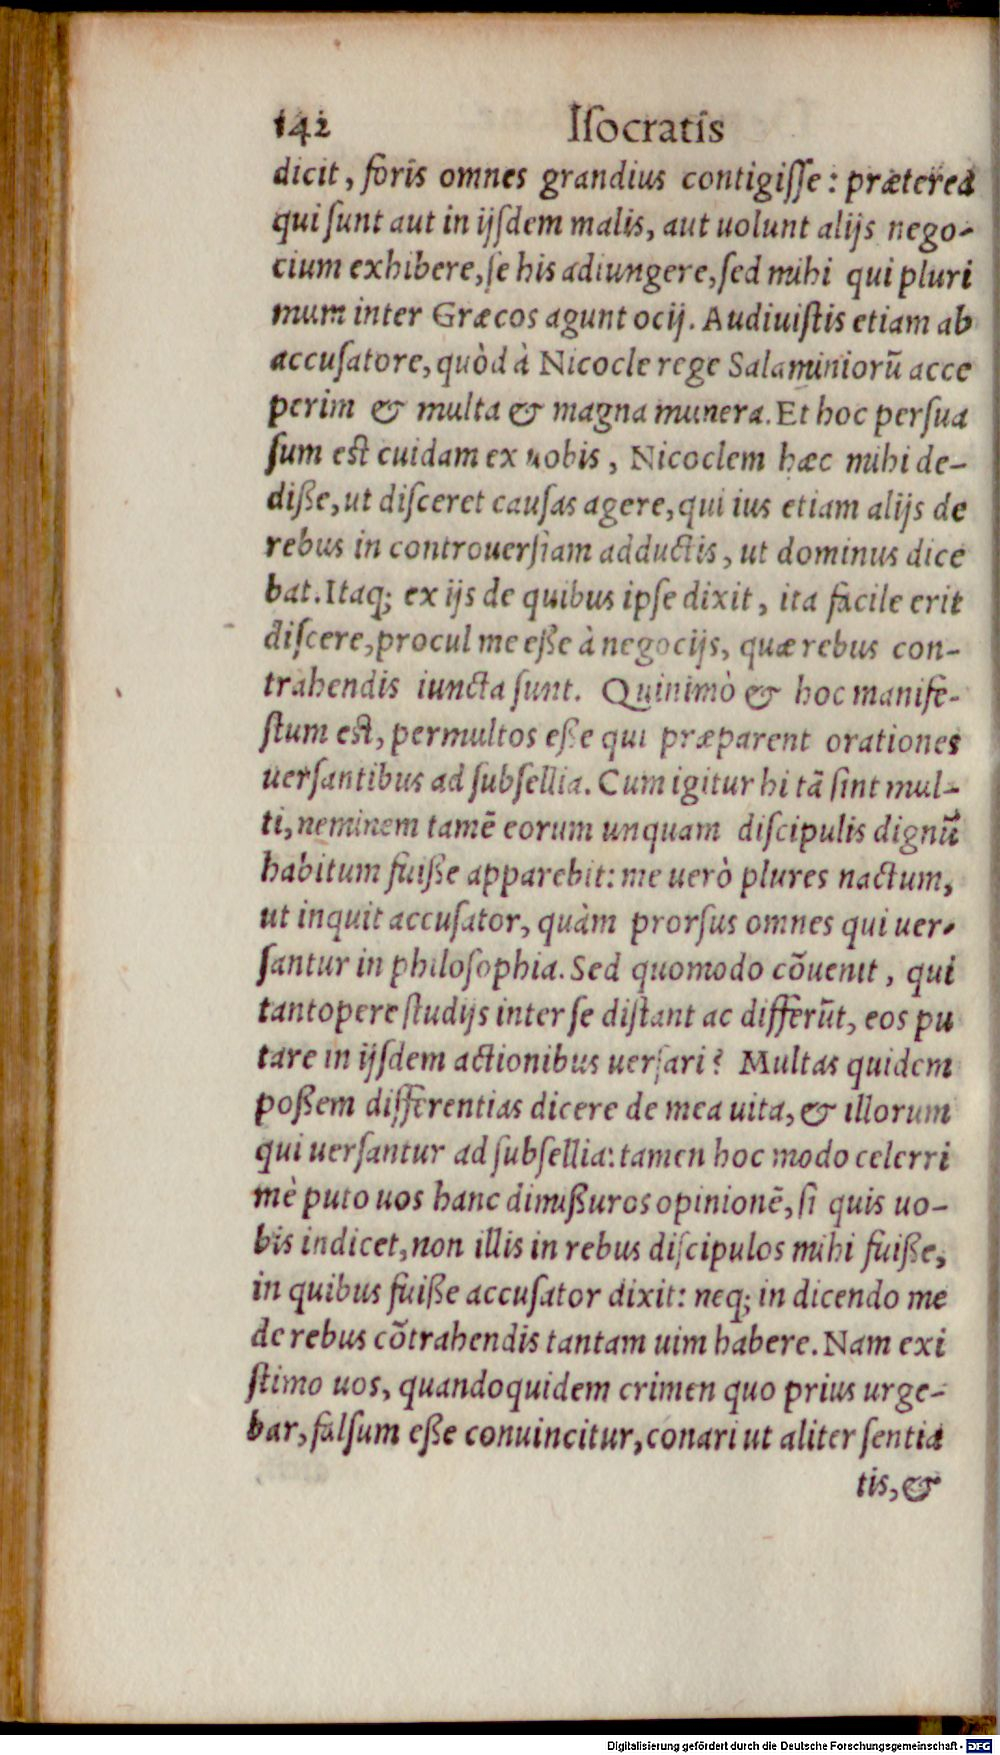 142 Iſocratis
dicit, foris omnes grandius contigiſſe: prætereà
qui ſunt aut in ijſdem malis, aut uolunt alijs nego-
cium exhibere, ſe his adiungere, ſed mihi qui pluri
mum inter Græcos agunt ocij. Audiuiſtis etiam ab
accuſatore, quòd à Nicocle rege Salaminiorũ acce
perim & multa & magna munera. Et hoc perſua
ſum eſt cuidam ex uobis, Nicoclem hæc mihi de-
diße, ut diſceret cauſas agere, qui ius etiam alijs de
rebus in controuerſiam adductis, ut dominus dice
bat. Itaq; ex ijs de quibus ipſe dixit, ita facile erit
diſcere, procul me eße à negocijs, quæ rebus con-
trahendis iuncta ſunt. Quinimò & hoc manife-
ſtum eſt, permultos eße qui præparent orationes
uerſantibus ad ſubſellia. Cum igitur hi tã ſint mul-
ti, neminem tamẽ eorum unquam diſcipulis dignũ
habitum fuiße apparebit: me uerò plures nactum,
ut inquit accuſator, quàm prorſus omnes qui uer-
ſantur in philoſophia. Sed quomodo cõuenit, qui
tantopere ſtudijs inter ſe diſtant ac differũt, eos pu
tare in ijſdem actionibus uerſari? Multas quidem
poßem differentias dicere de mea uita, & illorum
qui uerſantur ad ſubſellia: tamen hoc modo celerri
mè puto uos hanc dimißuros opinionẽ, ſi quis uo-
bis indicet, non illis in rebus diſcipulos mihi fuiße,
in quibus fuiße accuſator dixit: neq; in dicendo me
de rebus cõtrahendis tantam uim habere. Nam exi
ſtimo uos, quandoquidem crimen quo prius urge-
bar, falſum eße conuincitur, conari ut aliter ſentia
tis, &
Digitalisierung gefördert durch die Deutsche Forschungsgemeinschaft - DFG